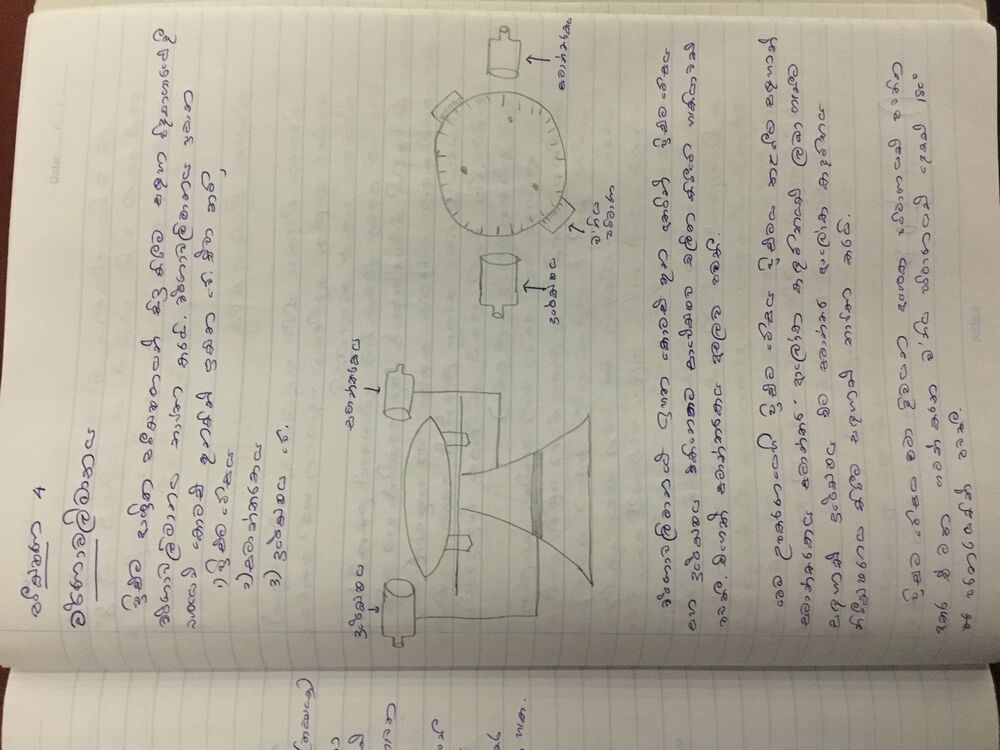 පරීක්ෂණ 4
වර්ණාවලිමානය
ප්‍රිස්ම ආශ්‍රිත පරීක්ෂණයන් සිදු කිරීම සඳහා විද්‍යාගාරයේ දී
වර්ණාවලිමානය භාවිතා කරයි. වර්ණාවලිමානය ප්‍රධාන
වශයෙන් කොටස් තුනකින් යුක්ත වේ. ඒවා නම්,
1) ප්‍රිස්ම මේසය
2) සමාන්තරකය
3) දුරේක්ෂය වේ.
දුරේක්ෂය
සමාන්තරකය
දුරේක්ෂය
ව'නියර්
පරිමාණ
සමාන්තරකය
වර්ණාවලිමානයේ ඉහත කොටස් තුන අතරින් ප්‍රිස්ම මේසය
සහ දුරේක්ෂය එකිනෙකට සාපේක්ෂව චලිත කිරීමේ හැකියාවක්
පවතී. එහෙත් සමාන්තරකය අචලව පවතී.
මෙම උපකරණයෙහි ප්‍රිස්ම මේසය ප්‍රිස්මය තැබීම සඳහාත්
සමාන්තරකය සමාන්තර ආලෝක කදම්භයක් ලබා ගැනීම
සඳහාත් දුරේක්ෂය එම සමාන්තර ආලෝක කදම්භය
නිරීක්ෂණය කිරීම සඳහාත් භාවිතා කරයි.
ප්‍රිස්ම මේසය වටා දිවයන අංශක පරිමාණයක් පවතින
අතර ඒ මත ගමන් කරන ව'නියර් පරිමාණයන් දෙකක් 180°
ක පරතරයකින් පවතී.